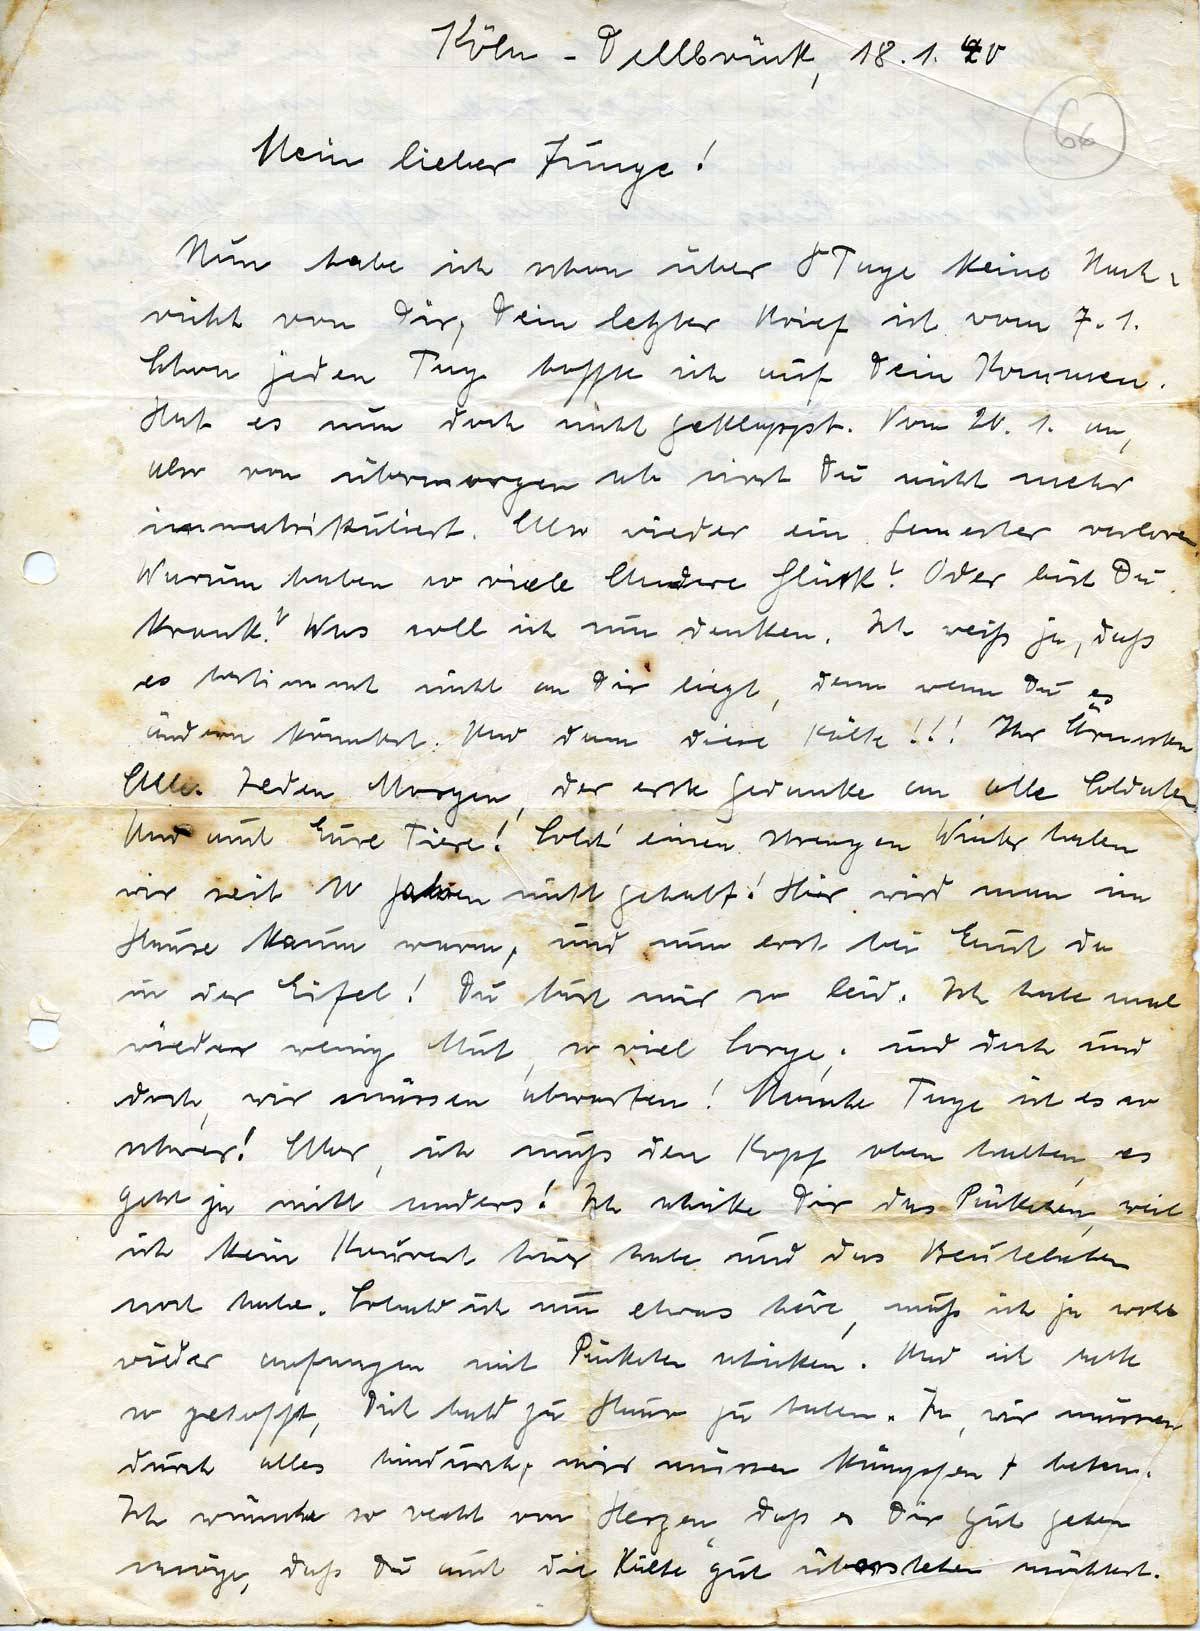 Köln-Dellbrück, 18.1.40
66
Mein lieber Junge!
Nun habe ich schon über 8 Tage keine Nach-
richt von Dir, Dein letzter Brief ist vom 7.1.
Schon jeden Tag hoffte ich auf Dein Kommen.
Hat es nun doch nicht geklappt. Vom 20.1. an,
also von übermorgen ab wirst Du nicht mehr
immatrikuliert. Also wieder ein Semester verloren.
Warum haben so viele Andere Glück? Oder bist Du
krank? Was soll ich nun denken. Ich weiß ja, daß
es bestimmt nicht an Dir liegt, denn wenn Du es
ändern könntest. Und dann diese Kälte!!! Ihr Ärmsten
Alle. Jeden Morgen, der erste Gedanke an alle Soldaten.
Und auch Eure Tiere! Solch' einen strengen Winter haben
wir seit 10 Jahren nicht gehabt! Hier wird man im
Hause kaum warm, und nun erst bei Euch da
in der Eifel! Du tust mir so leid. Ich habe mal
wieder wenig Mut, so viel Sorge, und doch und
doch, wir müssen abwarten! Manche Tage ist es so
schwer! Aber, ich muß den Kopf oben halten, es
geht ja nicht anders! Ich schicke Dir das Päckchen, weil
ich kein Kouvert hier habe und das Beutelchen
noch habe. Sobald ich nun etwas höre, muß ich ja wohl
wieder anfangen mit Päckchen schicken. Und ich hatte
so gehofft, Dich bald zu Haus zu haben. Ja, wir müssen
durch alles hindurch, wir müssen kämpfen + beten.
Ich wünsche so recht von Herzen, daß es Dir gut gehen
möge, daß Du auch die Kälte gut überstehen möchtest.